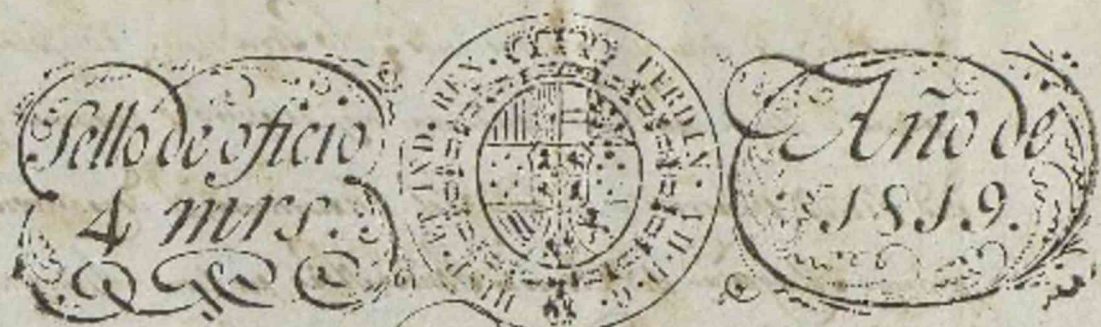 Sello de oficio
4 mrs.
FERDIN. VII. D. G. HISP. ET IND. REX.
Año de
1819.